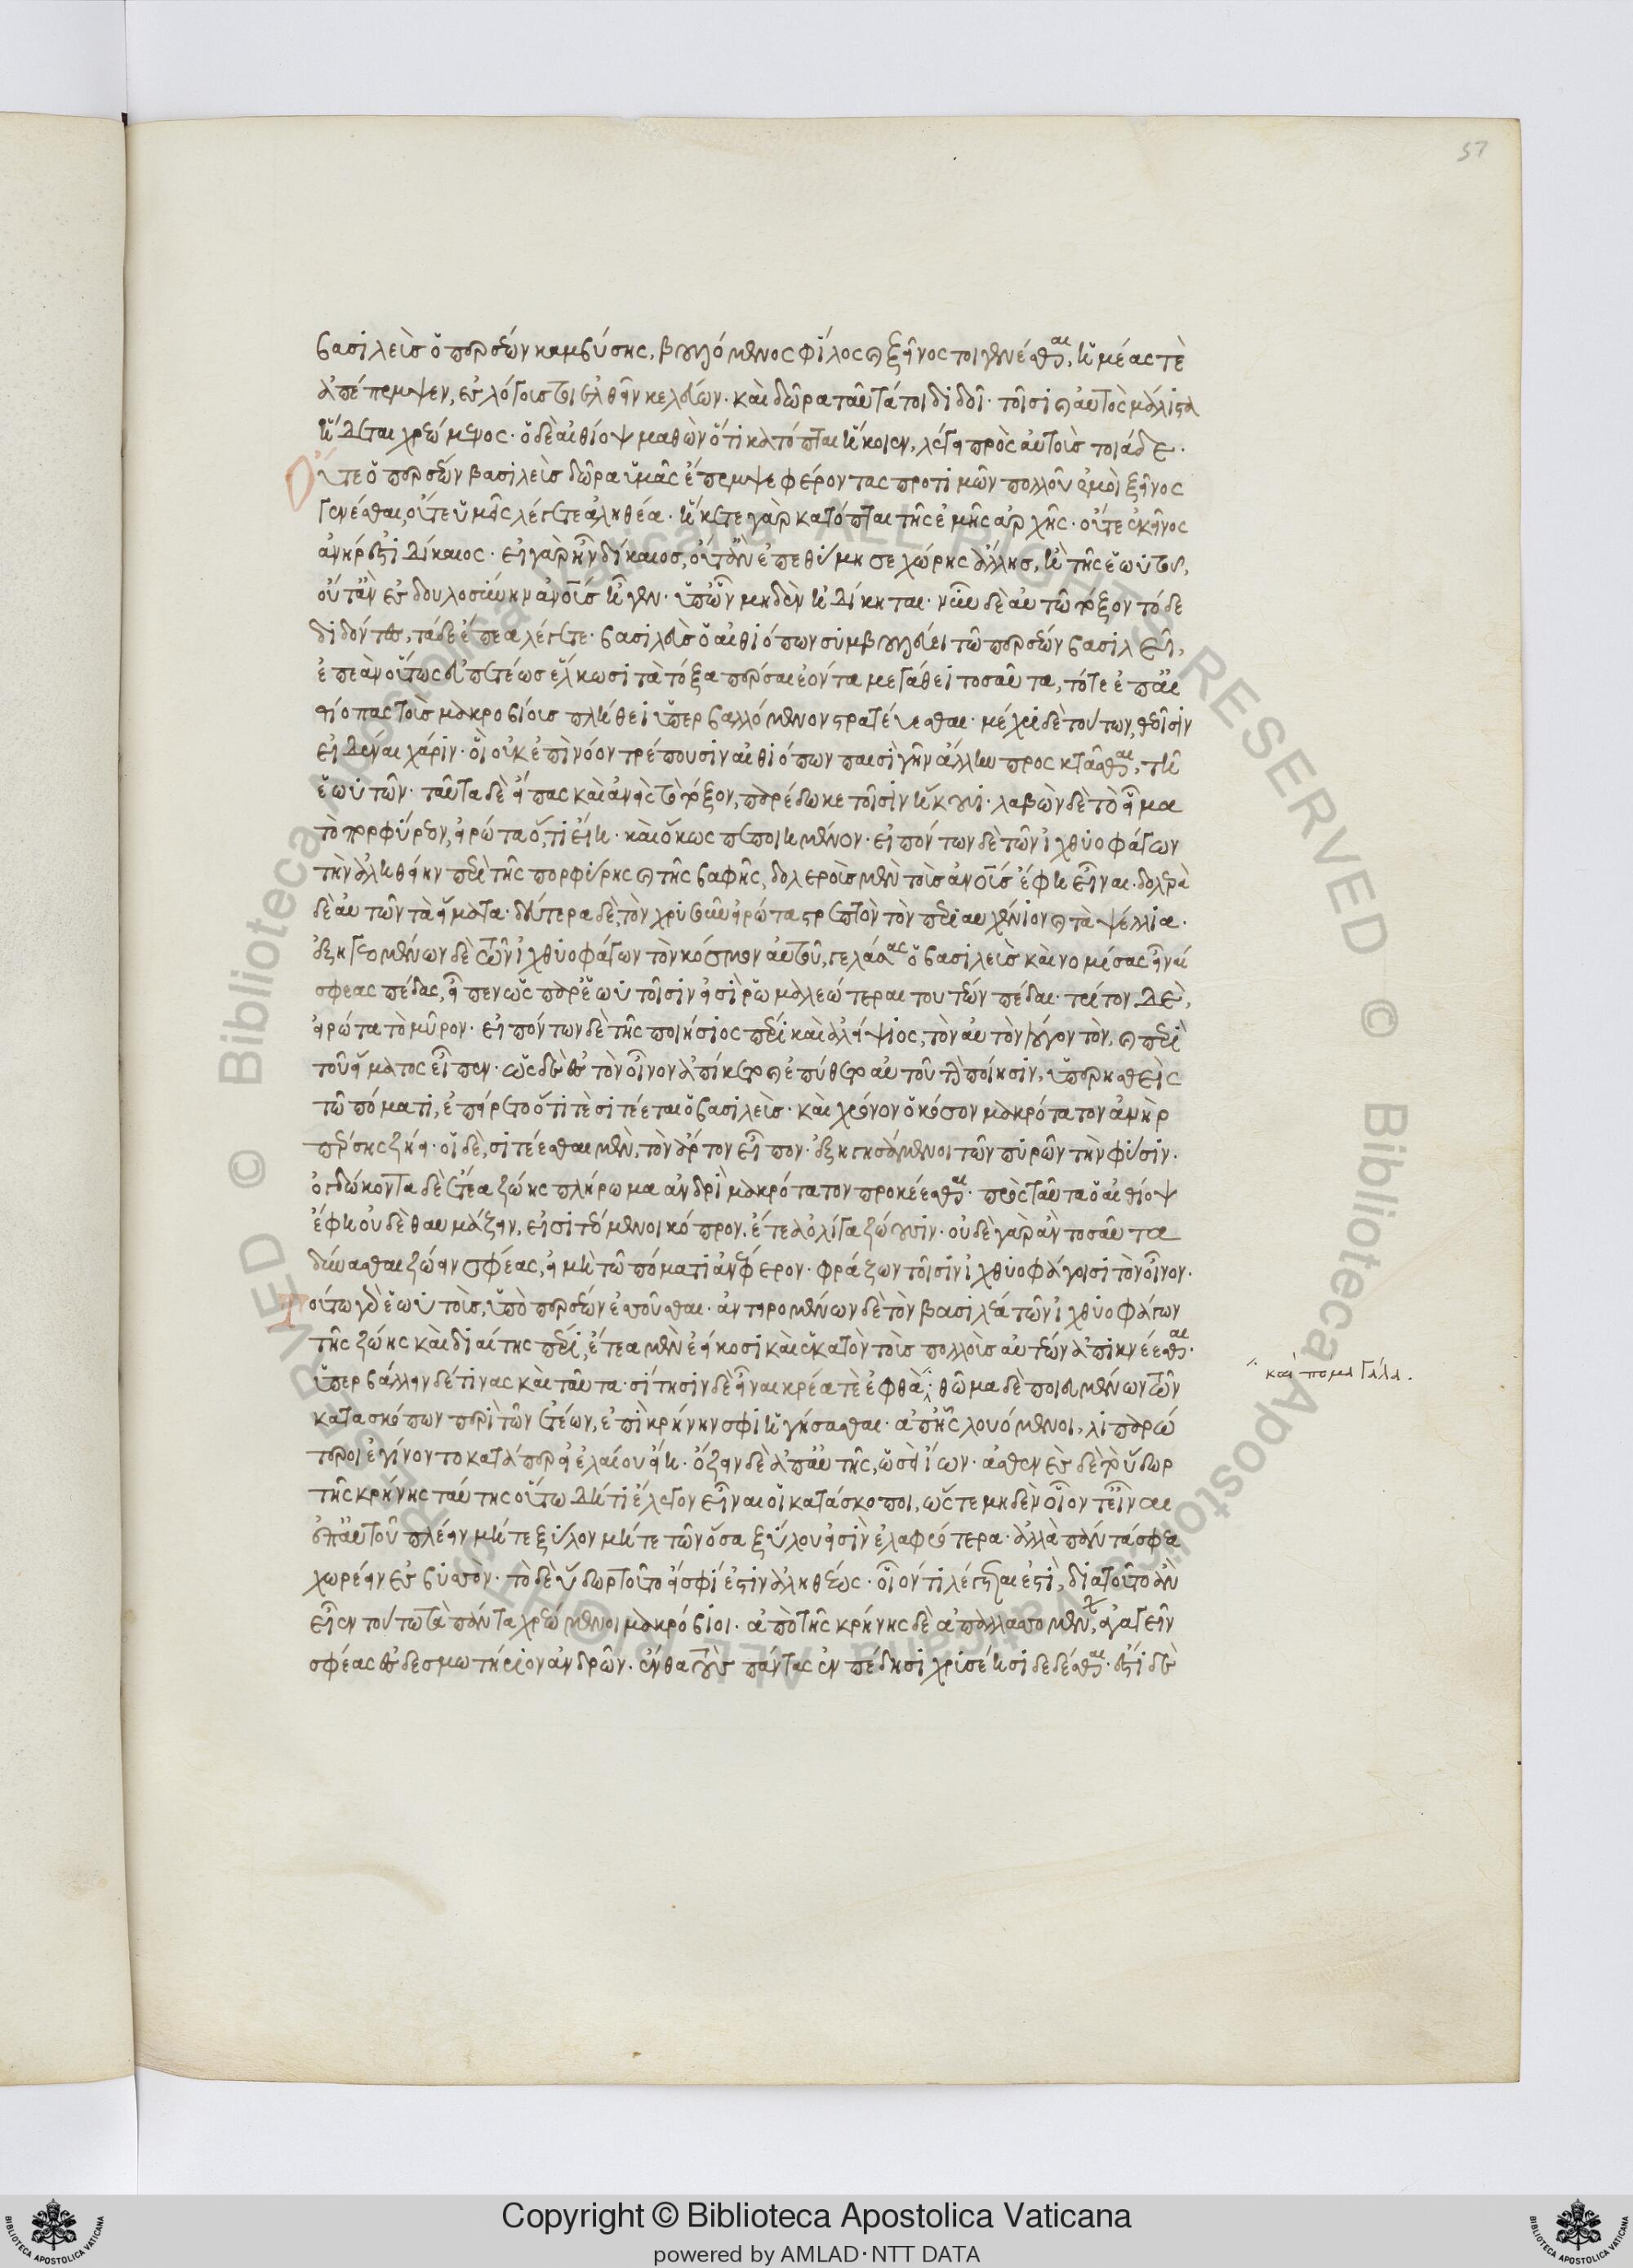 57
βασιλεὺς ὁ περσέων καμβύσης, βουλόμενος φίλος καὶ ξεῖνος τοι γενέσθαι, ἡμέας τὲ
ἀπέπεμψεν, ἐς λόγους τοι ἐλθεῖν κελεύων· καὶ δῶρα ταῦτά τοι διδοῖ· τοῖσι καὶ αὐτὸς μάλιστα
ἥδεται χρεώμενος· ὁ δὲ αἰθίοψ μαθὼν ὅτι κατόπται ἥκοιεν, λέγει πρὸς αὐτοὺς τοιάδε·
Οὔτε ὁ περσέων βασιλεὺς δῶρα ὑμᾶς ἔπεμψε φέροντας προτιμῶν πολλοῦ ἐμοὶ ξεῖνος
γενέσθαι, οὔτε ὑμεῖς λέγετε ἀληθέα· ἥκετε γὰρ κατόπται τῆς ἐμῆς ἀρχῆς· οὔτε ἐκεῖνος
ἀνήρ ἐστι δίκαιος· εἰ γὰρ ἦν δίκαιος, οὔτ' ἂν ἐπεθύμησε χώρης ἄλλης, ἢ τῆς ἑωυτοῦ,
οὔτ' ἂν ἐς δουλοσύνην ἀνθρώπους ἦγεν· ὑπ' ὧν μηδὲν ἠδίκηται· νῦν δὲ αὐτῶ τόξον τόδε
διδόντες, τάδε ἔπεα λέγετε· βασιλεὺς ὁ αἰθιόπων συμβουλεύει τῶ περσέων βασιλεῖ,
ἐπεὰν οὕτως εὐπετέως ἕλκωσι τὰ τόξα πέρσαι ἐόντα μεγάθεϊ τοσαῦτα, τότε ἐπ' αἰ
θίοπας τοὺς μακροβίους πλήθεϊ ὑπερβαλλόμενον στρατεύεσθαι· μέχρι δὲ τούτων, θεοῖσιν
εἰδέναι χάριν· οἳ οὐκ ἐπὶ νόον τρέπουσιν αἰθιόπων παισὶ γῆν ἄλλην προσκτᾶσθαι, τῆ
ἑωυτῶν· ταῦτα δὲ εἴπας καὶ ἀνεὶς τὸ τόξον, παρέδωκε τοῖσιν ἥκουσι· λαβὼν δὲ τὸ εἷμα
τὸ πορφύρεον, εἰρώτα ὅ,τι εἴη· καὶ ὅκως πεποιημένον· εἰπόντων δὲ τῶν ἰχθυοφάγων
τὴν ἀληθηίην περὶ τῆς πορφύρης καὶ τῆς βαφῆς, δολεροὺς μὲν τοὺς ἀνθρώπους ἔφη εἶναι· δολερὰ
δὲ αὐτῶν τὰ εἵματα· δεύτερα δὲ, τὸν χρυσοῦν εἰρώτα στρεπτὸν τὸν περιαυχένιον καὶ τὰ ψέλλια·
ἐξηγεομένων δὲ τῶν ἰχθυοφάγων τὸν κόσμον αὐτοῦ, γελάσας ὁ βασιλεὺς καὶ νομίσας εἶναί
σφεας πέδας, εἶπεν ὡς παρ' ἑωυτοῖσιν εἰσὶ ῥωμαλεώτεραι τουτέων πέδαι· τρίτον δὲ,
εἰρώτα τὸ μῦρον· εἰπόντων δὲ τῆς ποιήσιος πέρι καὶ ἀλείψιος, τὸν αὐτὸν λόγον τὸν, καὶ περὶ
τοῦ εἵματος εἶπεν· ὡς δὲ ἐς τὸν οἶνον ἀπίκετο καὶ ἐπύθετο αὐτοῦ τὴν ποίησιν, ὑπερησθεὶς
τῶ πόματι, ἐπείρετο ὅ τι τὲ σιτέεται ὁ βασιλεὺς· καὶ χρόνον ὁκόσον μακρότατον ἀνὴρ
πέρσης ζώει· οἱ δὲ, σιτέεσθαι μὲν, τὸν ἄρτον εἶπον· ἐξηγησάμενοι τῶν πυρῶν τὴν φύσιν·
ὀγδώκοντα δὲ ἔτεα ζώης πλήρωμα ἀνδρὶ μακρότατον προκέεσθαι· πρὸς ταῦτα ὁ αἰθίοψ
ἔφη οὐδὲ θαυμάζειν, εἰ σιτεόμενοι κόπρον, ἔτεα ὀλίγα ζώουσιν· οὐδὲ γὰρ ἂν τοσαῦτα
δύνασθαι ζώειν σφέας, εἰ μὴ τῶ πόματι ἀνέφερον· φράζων τοῖσιν ἰχθυοφάγοισι τὸν οἶνον·
τούτω γὰρ ἑωυτοὺς, ὑπὸ περσέων ἑσσοῦσθαι· ἀντειρομένων δὲ τὸν βασιλέα τῶν ἰχθυοφάγων
τῆς ζώης καὶ διαίτης πέρι, ἔτεα μὲν εἴκοσι καὶ ἑκατὸν τοὺς πολλοὺς αὐτέων ἀπικνέεσθαι·
ὑπερβάλλειν δέ τινας καὶ ταῦτα· σίτησιν δὲ εἶναι κρέα τὲ ἑφθὰ· θῶμα δὲ ποιευμένων τῶν
καὶ πόμα γάλα.
κατασκόπων περὶ τῶν ἐτέων, ἐπὶ κρήνην σφι ἡγήσασθαι· ἀπ' ἧς λουόμενοι, λιπαρώ
τεροι ἐγίνοντο κατάπερ εἰ ἐλαίου εἴη· ὄζειν δὲ ἀπ' αὐτῆς, ὡσεὶ ἴων· ἀσθενὲς δὲ τὸ ὕδωρ
τῆς κρήνης ταύτης οὕτω δή τι ἔλεγον εἶναι οἱ κατάσκοποι, ὥστε μηδὲν οἷόν τ' εἶναι
ἐπ' αὐτοῦ πλέειν μήτε ξύλον μήτε τῶν ὅσα ξύλου εἰσὶν ἐλαφρότερα· ἀλλὰ πάντά σφεα
χωρέειν ἐς βυσσόν· τὸ δὲ ὕδωρ τοῦτο εἴ σφί ἐστιν ἀληθέως· οἷόν τι λέγεται ἐστὶ, διὰ τοῦτο ἂν
εἶεν τούτω τὰ πάντα χρεώμενοι μακρόβιοι· ἀπὸ τῆς κρήνης δὲ ἀπαλλασσομένων, ἀγαγεῖν
σφέας ἐς δεσμωτήριον ἀνδρῶν· ἔνθα τοὺς πάντας ἐν πέδῃσι χρυσέῃσι δεδέσθαι· ἔστι δὲ
Copyright © Biblioteca Apostolica Vaticana
powered by AMLAD·NTT DATA